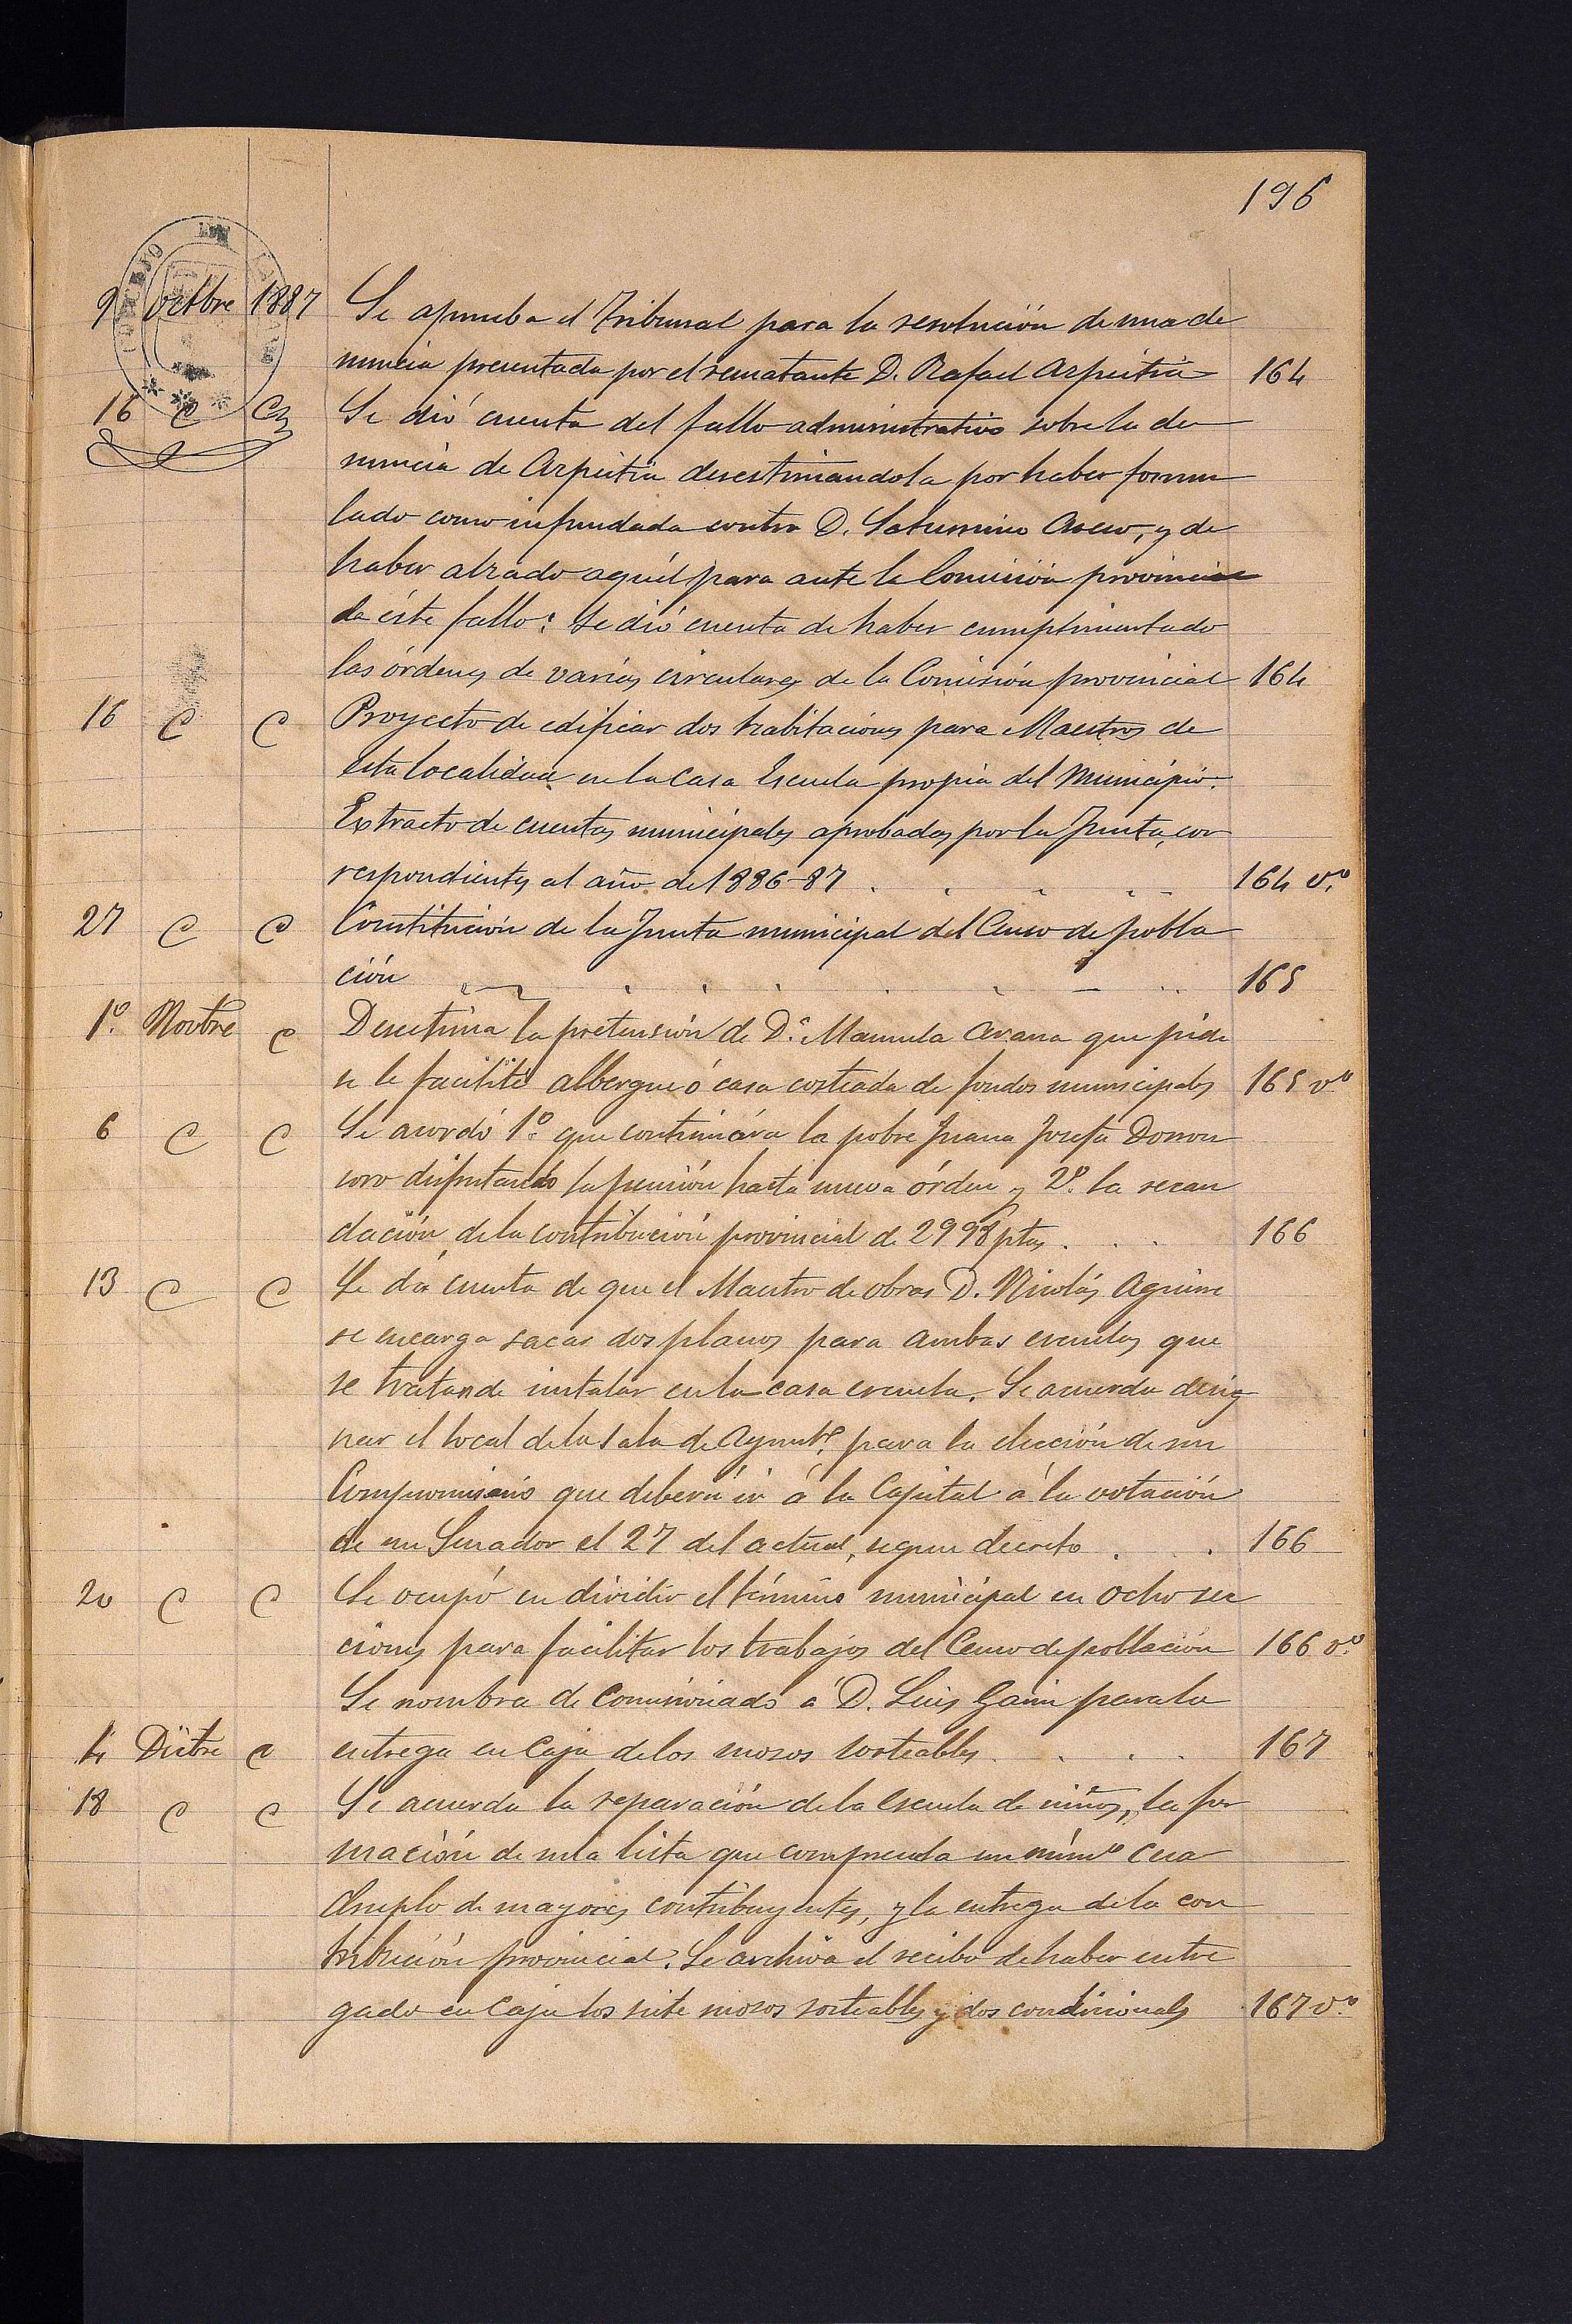 196
9 octbre 1887 Se aprueba el Tribunal para la resolución de una de
nuncia presentada por el rematante D. Rafael Azpeitia 164
16 C C Se dió cuenta del fallo administrativo sobre la de
nuncia de Azpeitia desestimandola por haber formu
lado como infundada contra D. Saturnino Aseo, y de
haber alzado aquél para ante la Comisión provincial
de éste fallo: Se dió cuenta de haber cumplimentado
las órdenes de varias circulares de la Comisión provincial 164
16 C C Proyecto de edificar dos habitaciones para Maestros de
esta localidad en la Casa Escuela propia del Municipio.
Extracto de cuentas municipales aprobadas por la Junta, cor
respondientes al año de 1886-87 164 vº
27 C C Constitución de la Junta municipal del Censo de pobla
ción 165
1º Novbre C Desestima la pretensión de Dª Manuela Arana que pide
se le facilite albergue ó casa costeada de fondos municipales 165 vº
6 C C Se acordó 1º que continuára la pobre Juana Josefa Donon
soro disfrutando la pensión hasta nueva órden y 2º la recau
dación de la contribución provincial de 2998 ptas 166
13 C C Se da cuenta de que el Maestro de obras D. Nicolás Aguirre
se encarga sacar dos planos para ambas escuelas que
se tratan de instalar en la casa escuela. Se acuerda desig
nar el local de la Sala de Ayuntº para la elección de un
Compromisario que deberá ir á la Capital á la votación
de un Senador el 27 del actual, segun decreto 166
20 C C Se ocupó en dividir el término municipal en ocho sec
ciones para facilitar los trabajos del Censo de población 166 vº
Se nombra de Comisionado á D. Luis para la
4 Dicbre C entrega en Caja de los mozos sorteables 167
18 C C Se acuerda la reparación de la Escuela de niños, la for
mación de una lista que comprenda un númº cua
druplo de mayores contribuyentes, y la entrega de la con
tribución provincial. Se archiva el recibo de haber entre
gado en Caja los siete mozos sorteables y dos condicionales 167 vº